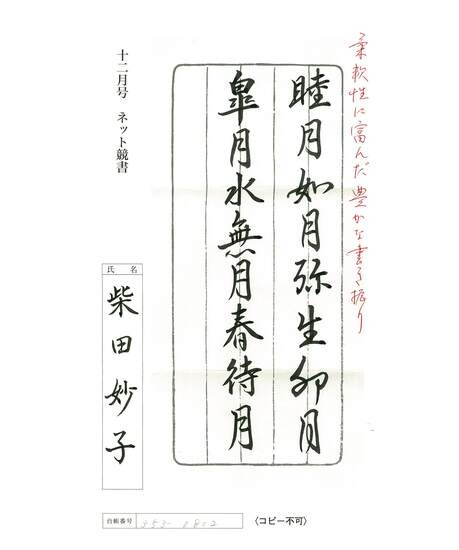 柔軟性に富んだ豊かな書き振り
睦月如月弥生卯月
皐月水無月春待月
十二月号 ネット競書
氏名
柴田妙子
自帳番号
〈コピー不可〉